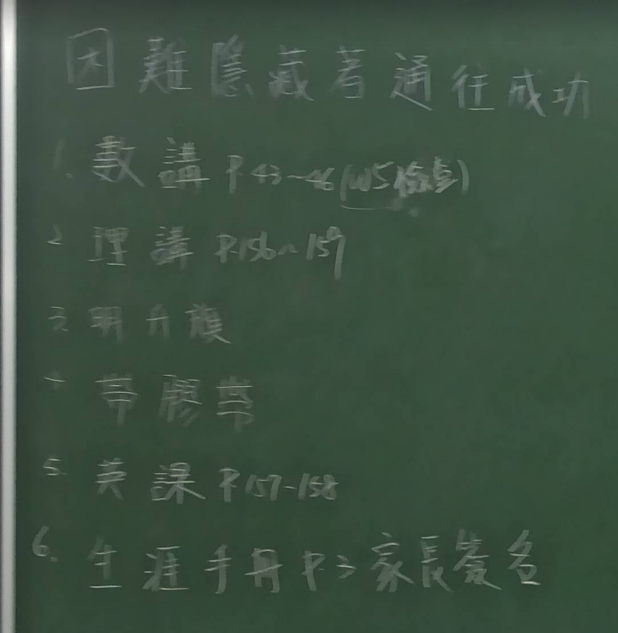 困難隱藏著通往成功
1. 數講 P.43~46 (105檢查)
2. 理講 P.156~159
3. 明升旗
4. 帶膠帶
5. 英課 P.157-158
6. 生涯手冊 P3 家長簽名